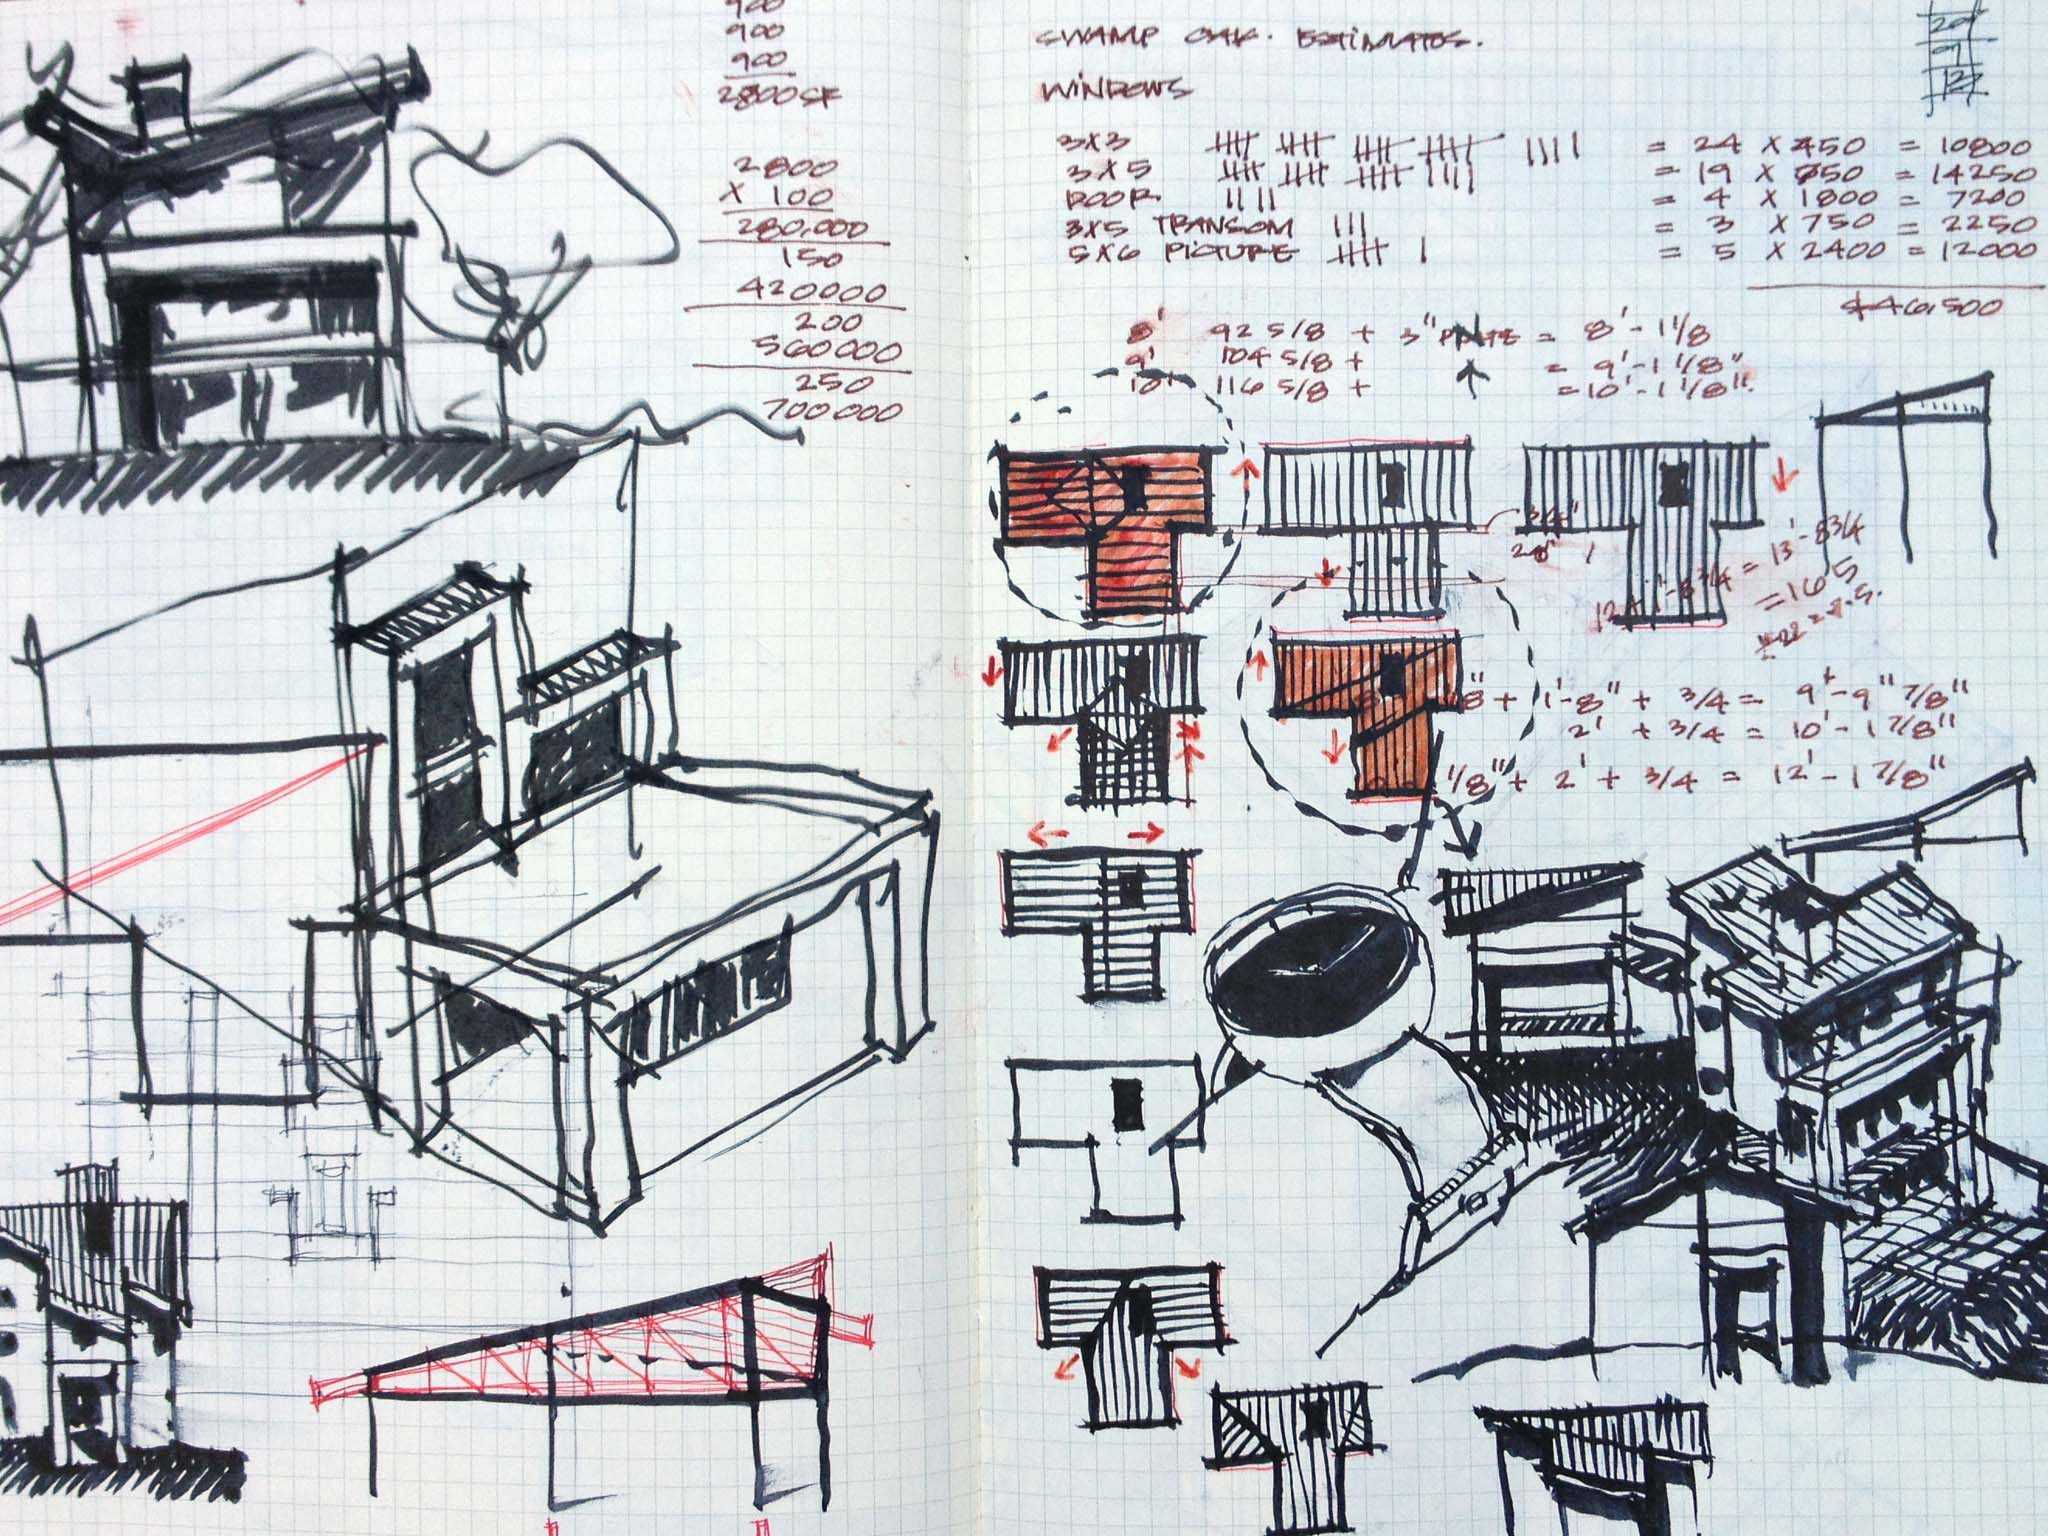 900
900
900
2800 SF
2800
X 100
280,000
150
420000
200
560000
250
700000
SWAMP OAK. ESTIMATES.
WINDOWS
3X3 = 24 X 450 = 10800
3X5 = 19 X 750 = 14250
DOOR = 4 X 1800 = 7200
3X5 TRANSOM III = 3 X 750 = 2250
5X6 PICTURE = 5 X 2400 = 12000
$46,500
8' 92 5/8 + 3" PLATE = 8'-1 1/8
9' 104 5/8 + = 9'-1 1/8"
10' 116 5/8 + = 10'-1 1/8"
3/4"
= 13'-8 3/4
= 16.5
8" + 1'-8" + 3/4 = 9'-9" 7/8"
2' + 3/4 = 10'-1 7/8"
1/8" + 2' + 3/4 = 12'-1 7/8"